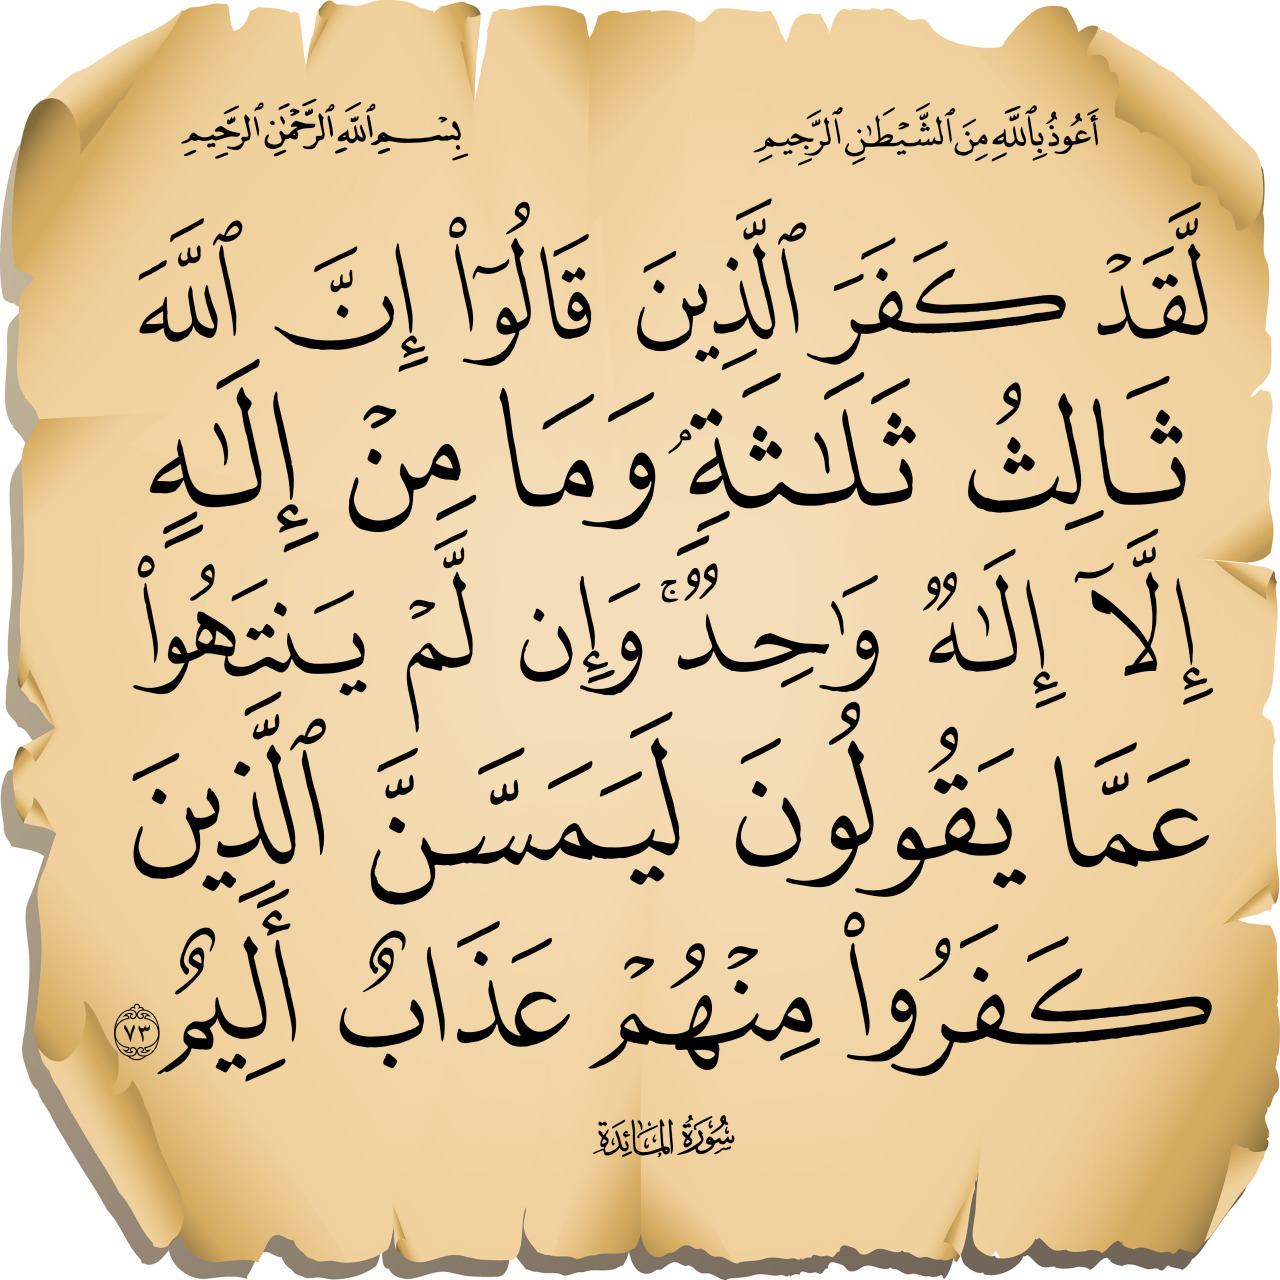 أَعُوذُ بِٱللَّهِ مِنَ ٱلشَّيۡطَٰنِ ٱلرَّجِيمِ
بِسۡمِ ٱللَّهِ ٱلرَّحۡمَٰنِ ٱلرَّحِيمِ
لَّقَدۡ كَفَرَ ٱلَّذِينَ قَالُوٓاْ إِنَّ ٱللَّهَ
ثَالِثُ ثَلَٰثَةٖۘ وَمَا مِنۡ إِلَٰهٍ
إِلَّآ إِلَٰهٞ وَٰحِدٞۚ وَإِن لَّمۡ يَنتَهُواْ
عَمَّا يَقُولُونَ لَيَمَسَّنَّ ٱلَّذِينَ
كَفَرُواْ مِنۡهُمۡ عَذَابٌ أَلِيمٌ ٧٣
سُورَةُ المَائِدَة